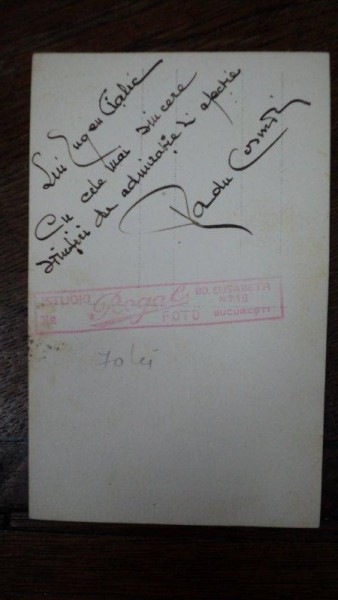 Lui Eugen Cialic
Cu cele mai sincere
simțiri de admirație și afecție
Radu Cosmin
STUDIO Bogal's BD. ELISABETA
No. FOTO BUCUREȘTI
70 lei